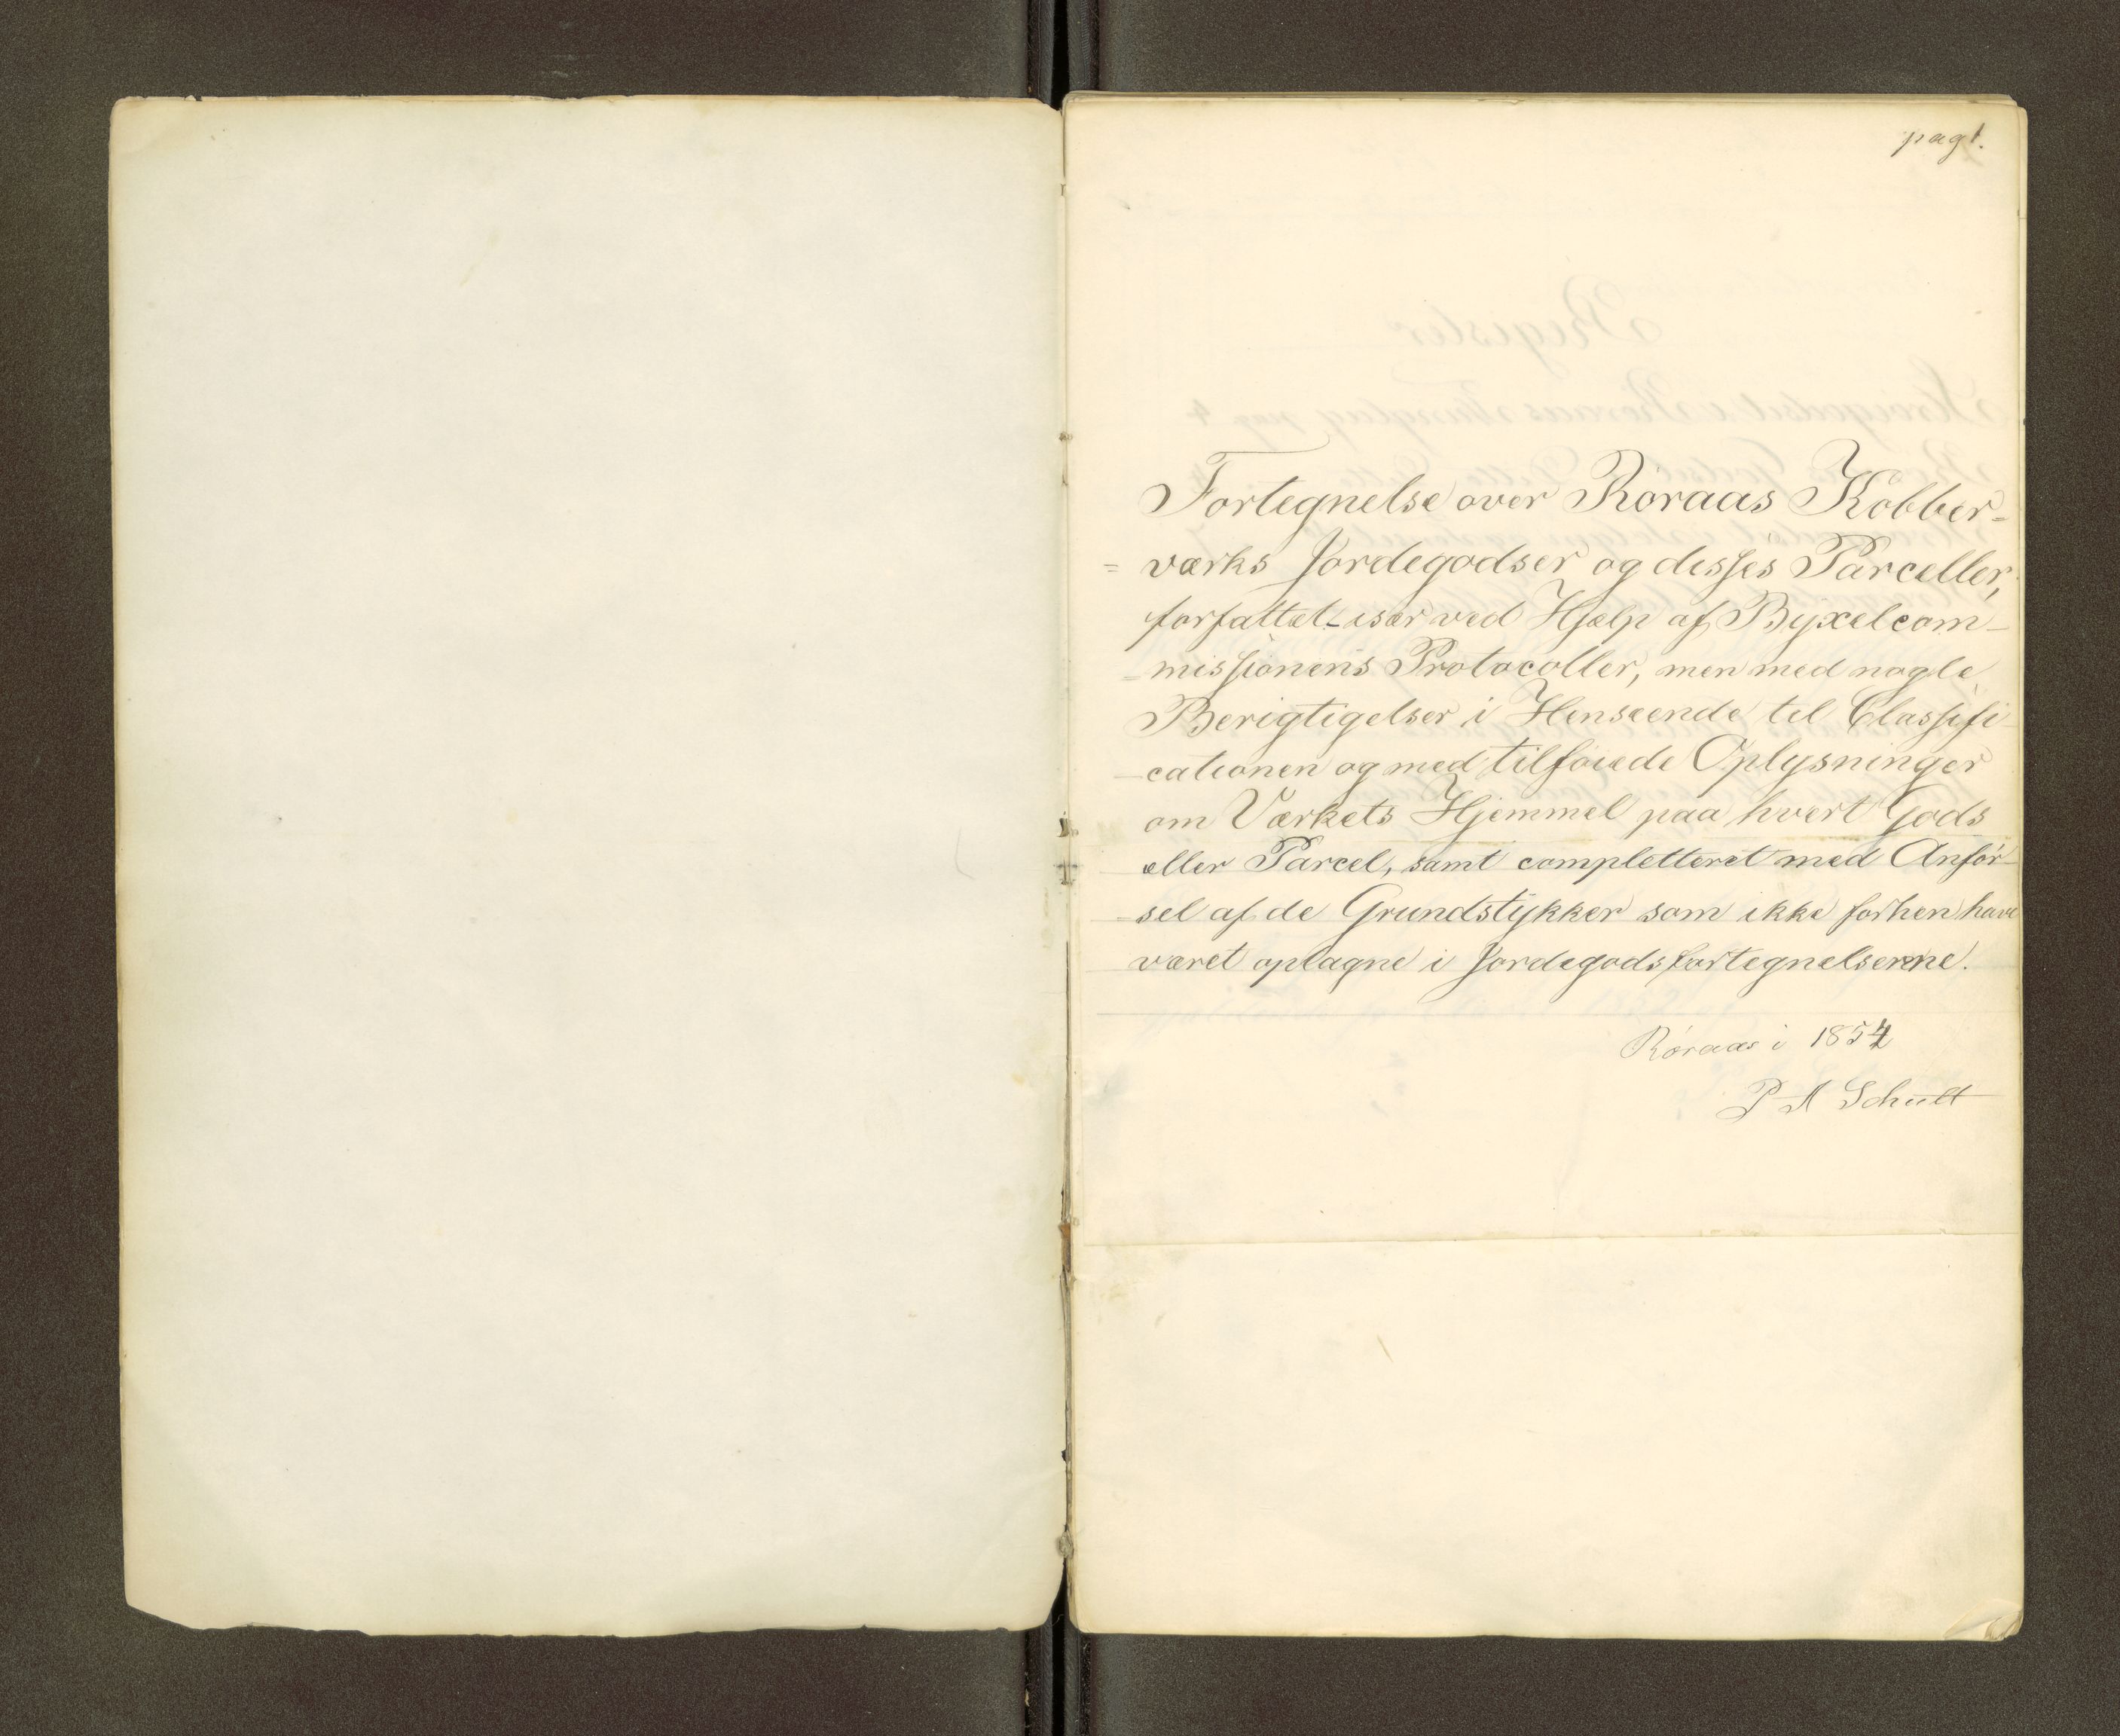 pag 1.
Fortegnelse over Røraas Kobber=
=værks Jordegodser og disses Parceller,
forfattet især ved Hjælp af Byxelcom-
=missionens Protocoller, men med nogle
Berigtigelser i Henseende til Classifi-
-cationen og med tilføiede Oplysninger
om Værkets Hjemmel paa hvert Gods
eller Parcel, samt completteret med Anfør-
-sel af de Grundstykker som ikke forhen have
været optagne i Jordegodsfortegnelserne.
Røraas i 1854
P A Schult